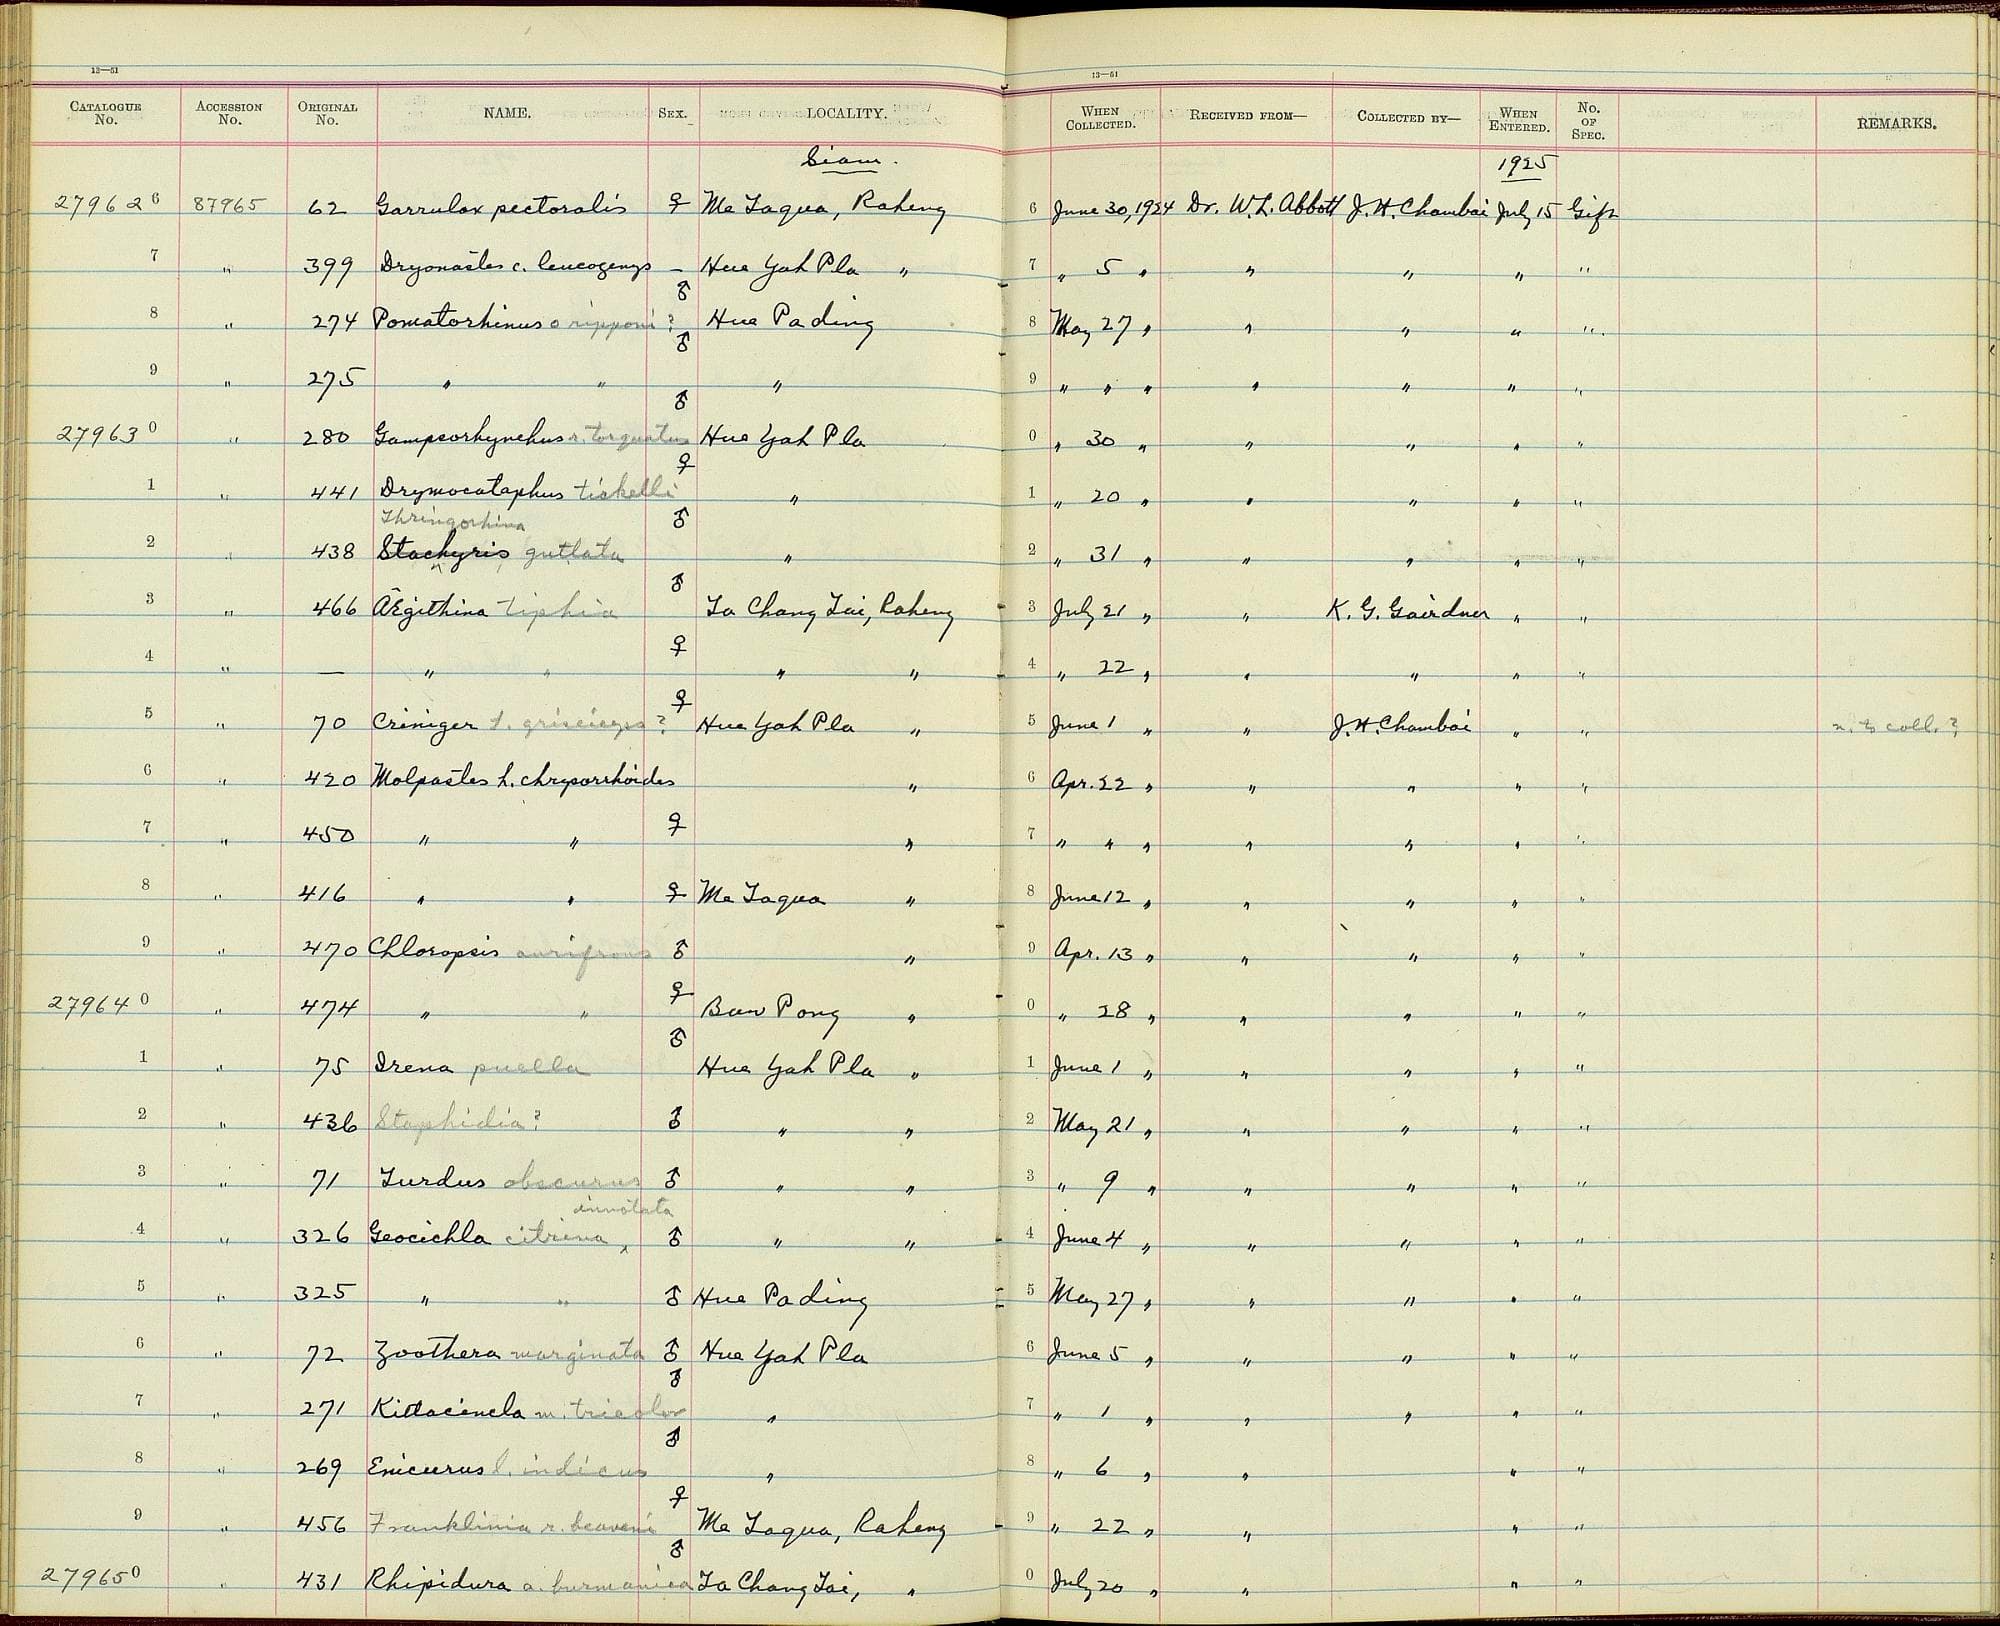 13—51 13—51
CATALOGUE No. ACCESSION No. ORIGINAL No. NAME. SEX. LOCALITY. WHEN COLLECTED. RECEIVED FROM— COLLECTED BY— WHEN ENTERED. No. OF SPEC. REMARKS.
Siam. 1925
279626 87965 62 Garrulax pectoralis ♀ Me Taqua, Raheng 6 June 30, 1924 Dr. W. L. Abbott J. H. Chambai July 15 Gift
7 " 399 Dryonastes c. leucogenys – Hue Yah Pla " 7 " 5 " " " " "
8 " 274 Pomatorhinus o ripponi ? ♂ Hue Pading 8 May 27 " " " " "
9 " 275 " " ♂ " 9 " " " " " " "
279630 " 280 Gampsorhynchus r. torquatus ♂ Hue Yah Pla 0 " 30 " " " " "
1 " 441 Drymocataphus tickelli ♀ " 1 " 20 " " " " "
Thringorhina
2 " 438 Stachyris guttata ♂ " 2 " 31 " " " " "
3 " 466 Ægithina tiphia ♂ Ta Chang Tai, Raheng 3 July 21 " " K. G. Gairdner " "
4 " — " " ♀ " " 4 " 22 " " " " "
5 " 70 Criniger t. griseiceps ? ♀ Hue Yah Pla " 5 June 1 " " J. H. Chambai " " n. to coll. ?
6 " 420 Molpastes h. chrysorrhoides " 6 Apr. 22 " " " " "
7 " 450 " " ♀ " 7 " " " " " " "
8 " 416 " " ♀ Me Taqua " 8 June 12 " " " " "
9 " 470 Chloropsis aurifrons ♂ " 9 Apr. 13 " " " " "
279640 " 474 " " ♀ Ban Pong " 0 " 28 " " " " "
1 " 75 Irena puella ♂ Hue Yah Pla " 1 June 1 " " " " "
2 " 436 Staphidia ? ♂ " " 2 May 21 " " " " "
3 " 71 Turdus obscurus ♂ " " 3 " 9 " " " " "
innotata
4 " 326 Geocichla citrina ‸ ♂ " " 4 June 4 " " " " "
5 " 325 " " ♂ Hue Pading 5 May 27 " " " " "
6 " 72 Zoothera marginata ♂ Hue Yah Pla 6 June 5 " " " " "
7 " 271 Kittacincla m. tricolor ♂ " 7 " 1 " " " " "
8 " 269 Enicurus l. indicus ♂ " 8 " 6 " " " "
9 " 456 Franklinia r. beavani ♀ Me Taqua, Raheng 9 " 22 " " " "
279650 " 431 Rhipidura a. burmanica ♂ Ta Chang Tai, " 0 July 20 " " " "